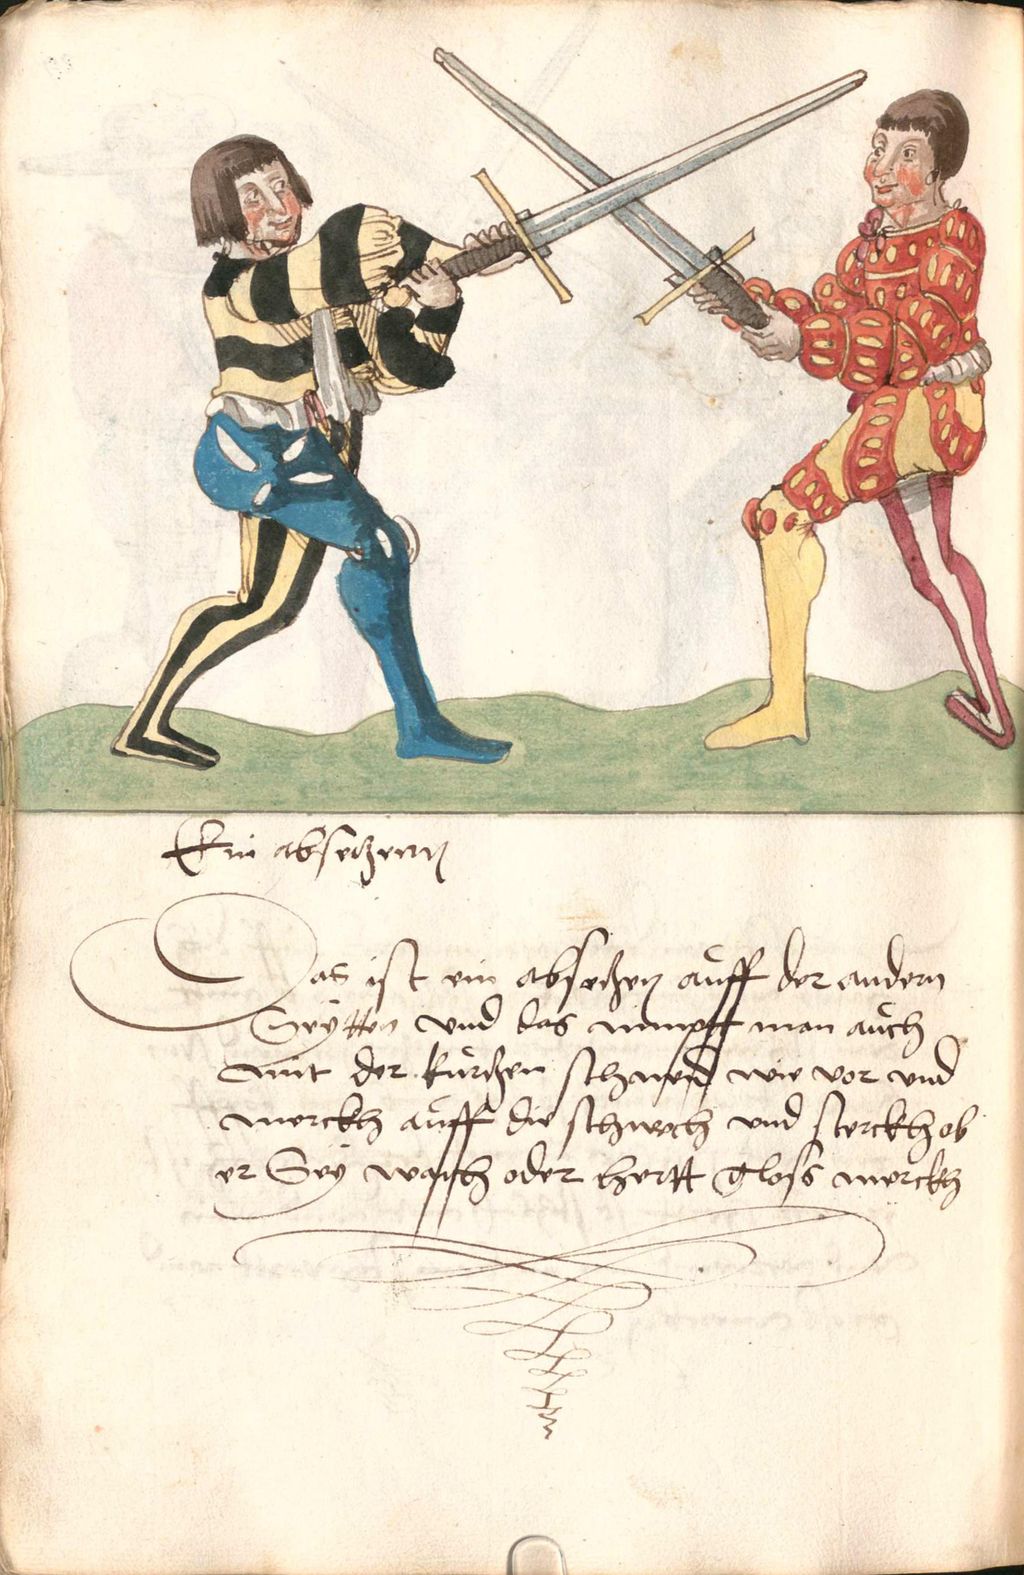 Ein absetzenn
Das ist ein absetzen auff der andern
Seytten vnd das nimptt man auch
mit der kurtzen schneid wie vor vnd
merckh auff die schwech vnd sterckh ob
er Sey waich oder hertt gloss merckh